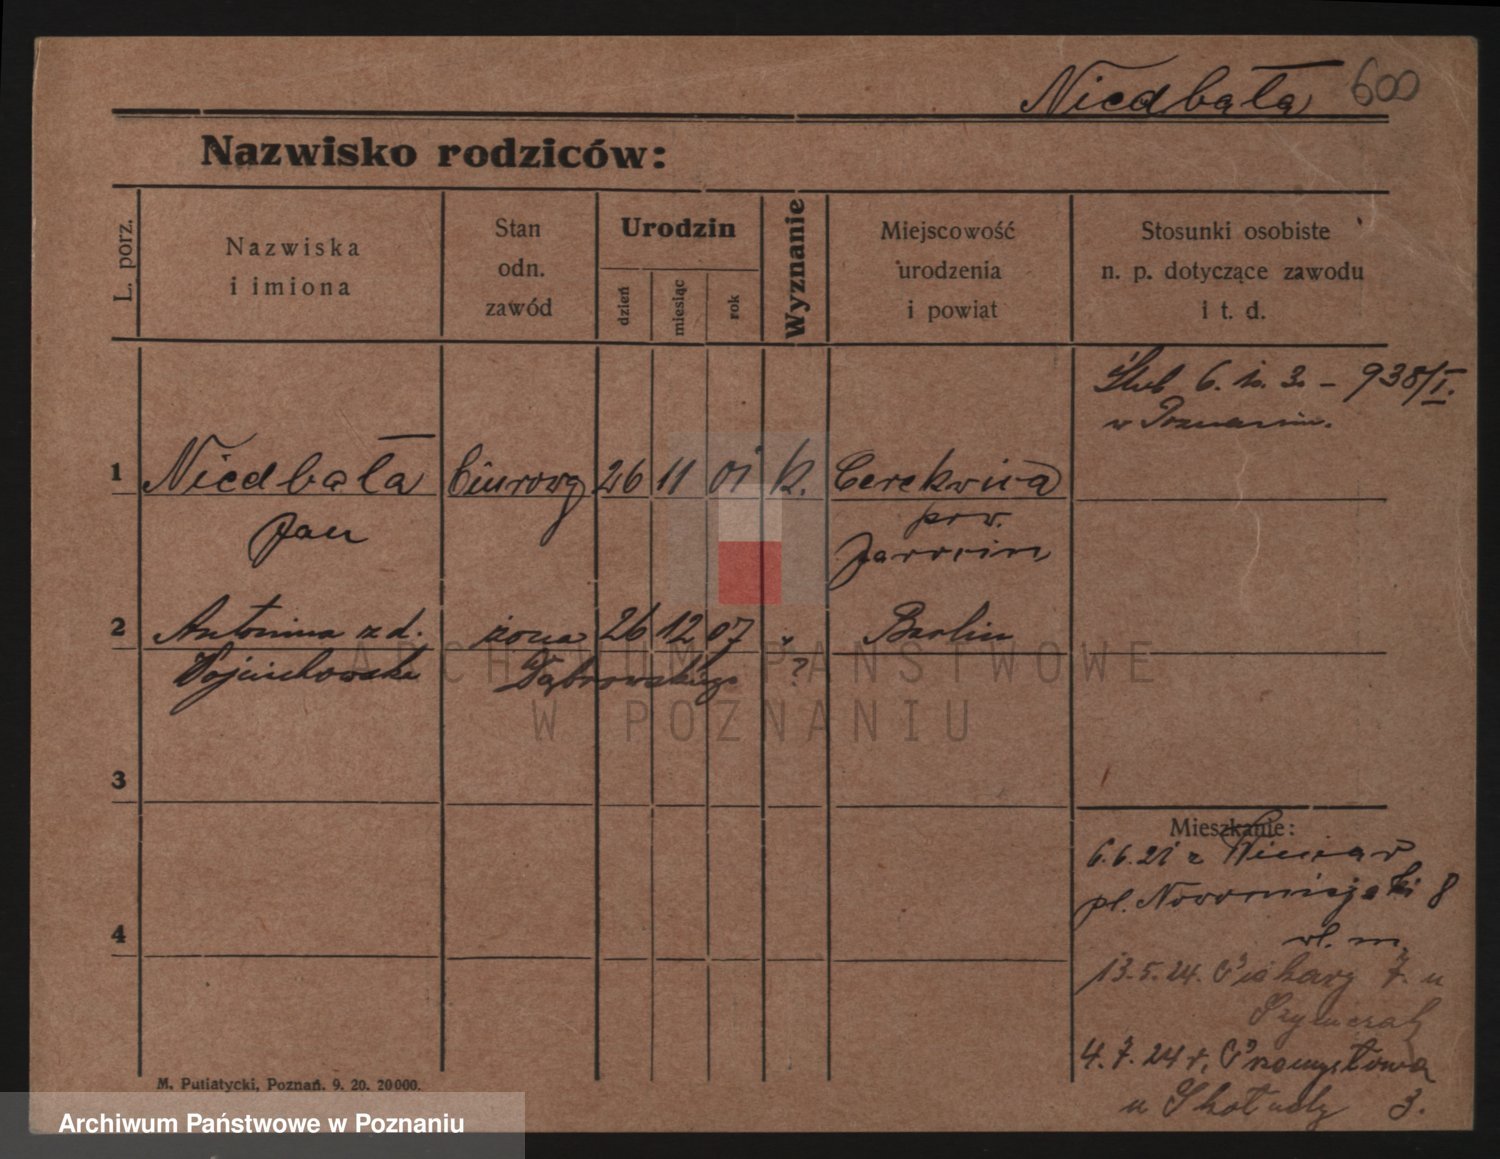 Niedbała 600
Nazwisko rodziców:
L. porz.
Nazwiska
i imiona
Stan
odn.
zawód
Urodzin
dzień
miesiąc
rok
Wyznanie
Miejscowość
urodzenia
i powiat
Stosunki osobiste
n. p. dotyczące zawodu
i t. d.
Ślub 6. 10. 30 – 938/I.
w Poznaniu.
1 Niedbała biurowy 26 11 01 k. Cerekwica
Jan pow.
Jarocin
2 Antonina z d. żona 26 12 07 Berlin
Wojciechowska Dąbrowskiego ?
3
4
Mieszkanie:
6.6.21 z Winiar
pl. Nowomiejski 8
wł. m.
13.5.24. Piekary 7. u
Szymczak
4.7.24 r. Przemysłowa
u 3.
M. Putiatycki, Poznań. 9. 20. 20 000.
ARCHIWUM PAŃSTWOWE
W POZNANIU
Archiwum Państwowe w Poznaniu